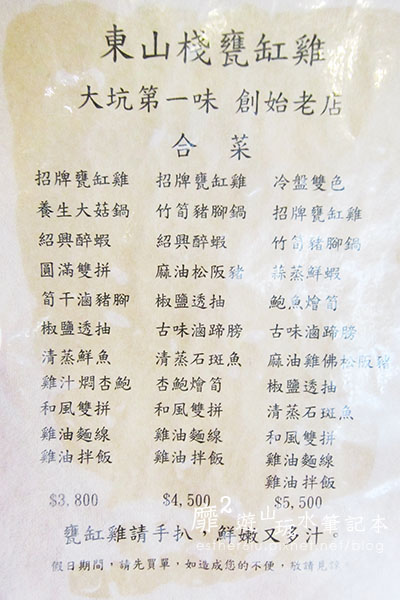 東山棧甕缸雞
大坑第一味 創始老店
合菜
招牌甕缸雞
養生大菇鍋
紹興醉蝦
圓滿雙拼
筍干滷豬腳
椒鹽透抽
清蒸鮮魚
雞汁燜杏鮑
和風雙拼
雞油麵線
雞油拌飯
$3.800
招牌甕缸雞
竹筍豬腳鍋
紹興醉蝦
麻油松阪豬
椒鹽透抽
古味滷蹄膀
清蒸石斑魚
杏鮑燴筍
和風雙拼
雞油麵線
雞油拌飯
$4,500
冷盤雙色
招牌甕缸雞
竹筍豬腳鍋
蒜蒸鮮蝦
鮑魚燴筍
古味滷蹄膀
麻油雞佛松阪豬
椒鹽透抽
清蒸石斑魚
和風雙拼
雞油麵線
雞油拌飯
$5,500
甕缸雞請手扒，鮮嫩又多汁。
假日期間，請先買單，如造成您的不便，敬請見諒
靡2遊山玩水筆記本
.pixnet.net/blog